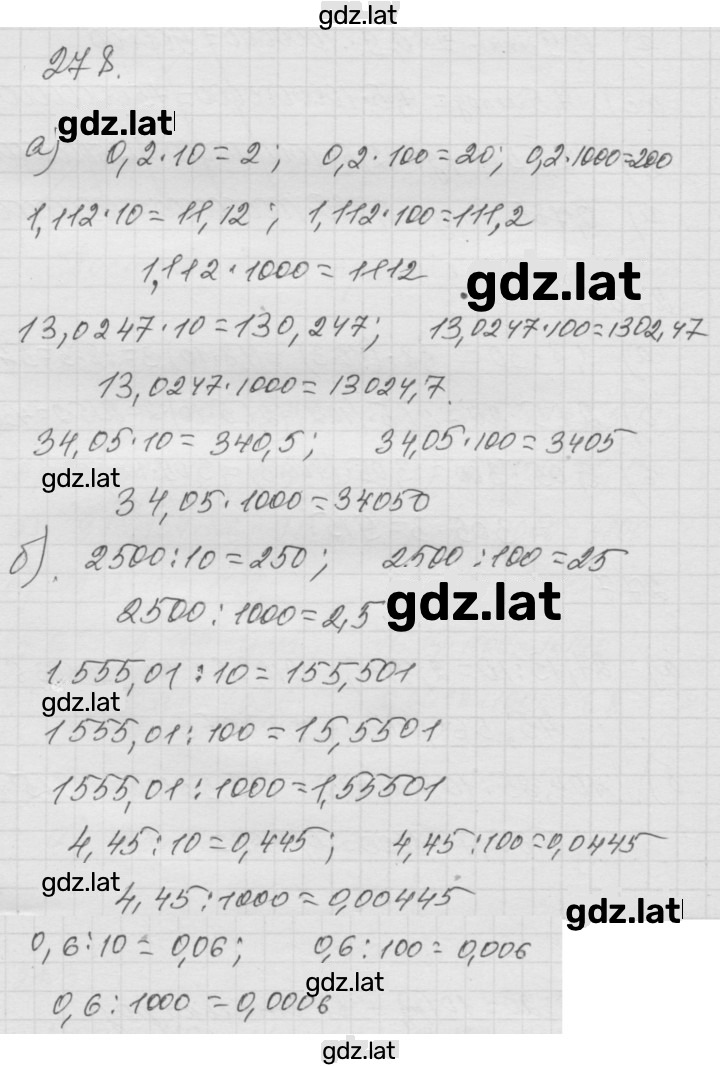 gdz.lat
278.
gdz.lat
а) 0,2·10=2; 0,2·100=20; 0,2·1000=200
1,112·10=11,12; 1,112·100=111,2
1,112·1000=1112
gdz.lat
13,0247·10=130,247; 13,0247·100=1302,47
13,0247·1000=13024,7.
34,05·10=340,5; 34,05·100=3405
gdz.lat
34,05·1000=34050
б). 2500:10=250; 2500:100=25
2500:1000=2,5
gdz.lat
1555,01:10=155,501
gdz.lat
1555,01:100=15,5501
1555,01:1000=1,55501
4,45:10=0,445; 4,45:100=0,0445
gdz.lat
4,45:1000=0,00445
gdz.lat
0,6:10=0,06; 0,6:100=0,006
gdz.lat
0,6:1000=0,0006
gdz.lat